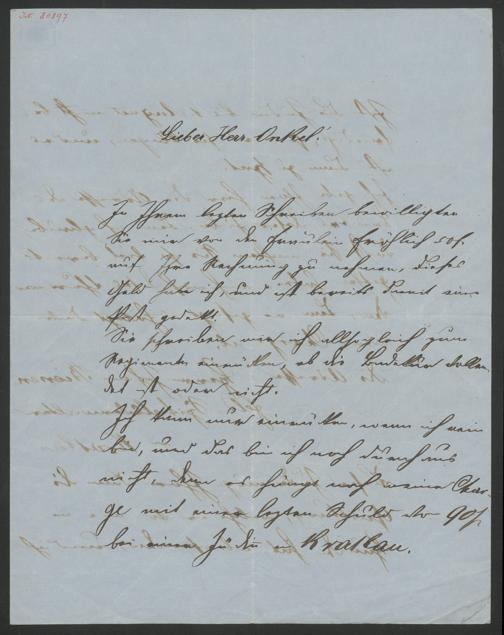 I.N. 80897
Lieber Herr Onkel!
In Ihrem letzten Schreiben bewilligten
Sie mir von der Fräulein Fröhlich 50f.
auf Ihre Rechnung zu nehmen, dieses
Geld habe ich, und ist bereits damit eine
Post gedekt.
Sie schreiben mir ich allsogleich zum
Regimente einrüken, ob die Badekur vollen
det ist oder nicht.
Ich kann nur einrüken, wenn ich rein
bin, und das bin ich noch durchaus
nicht, denn es hängt noch meine Char
ge mit einer letzten Schuld von 90f.
bei einer Jüdin in Krakau.